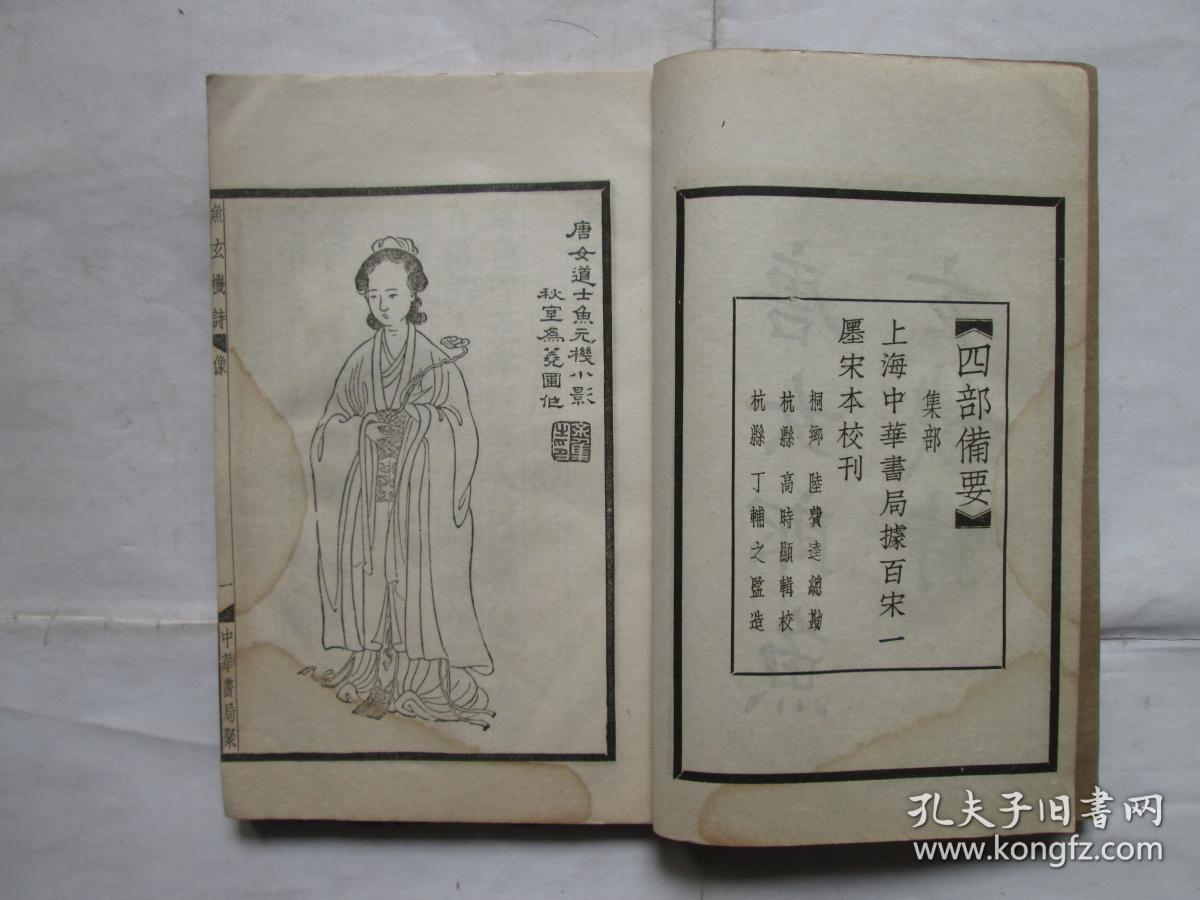 【四部備要】
集部
上海中華書局據百宋一
廛宋本校刊
桐鄉陸費逵總勘
杭縣高時顯輯校
杭縣丁輔之監造
唐女道士魚元機小影
秋室為蕘圃作
魚玄機詩 像 一 中華書局聚
孔夫子旧书网
www.kongfz.com